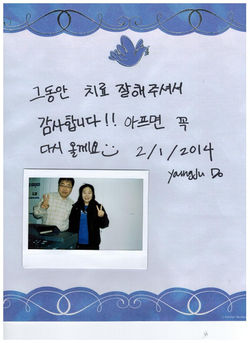 그동안 치료 잘해주셔서
감사합니다!! 아프면 꼭
다시 올께요
2/1/2014
Youngju Do